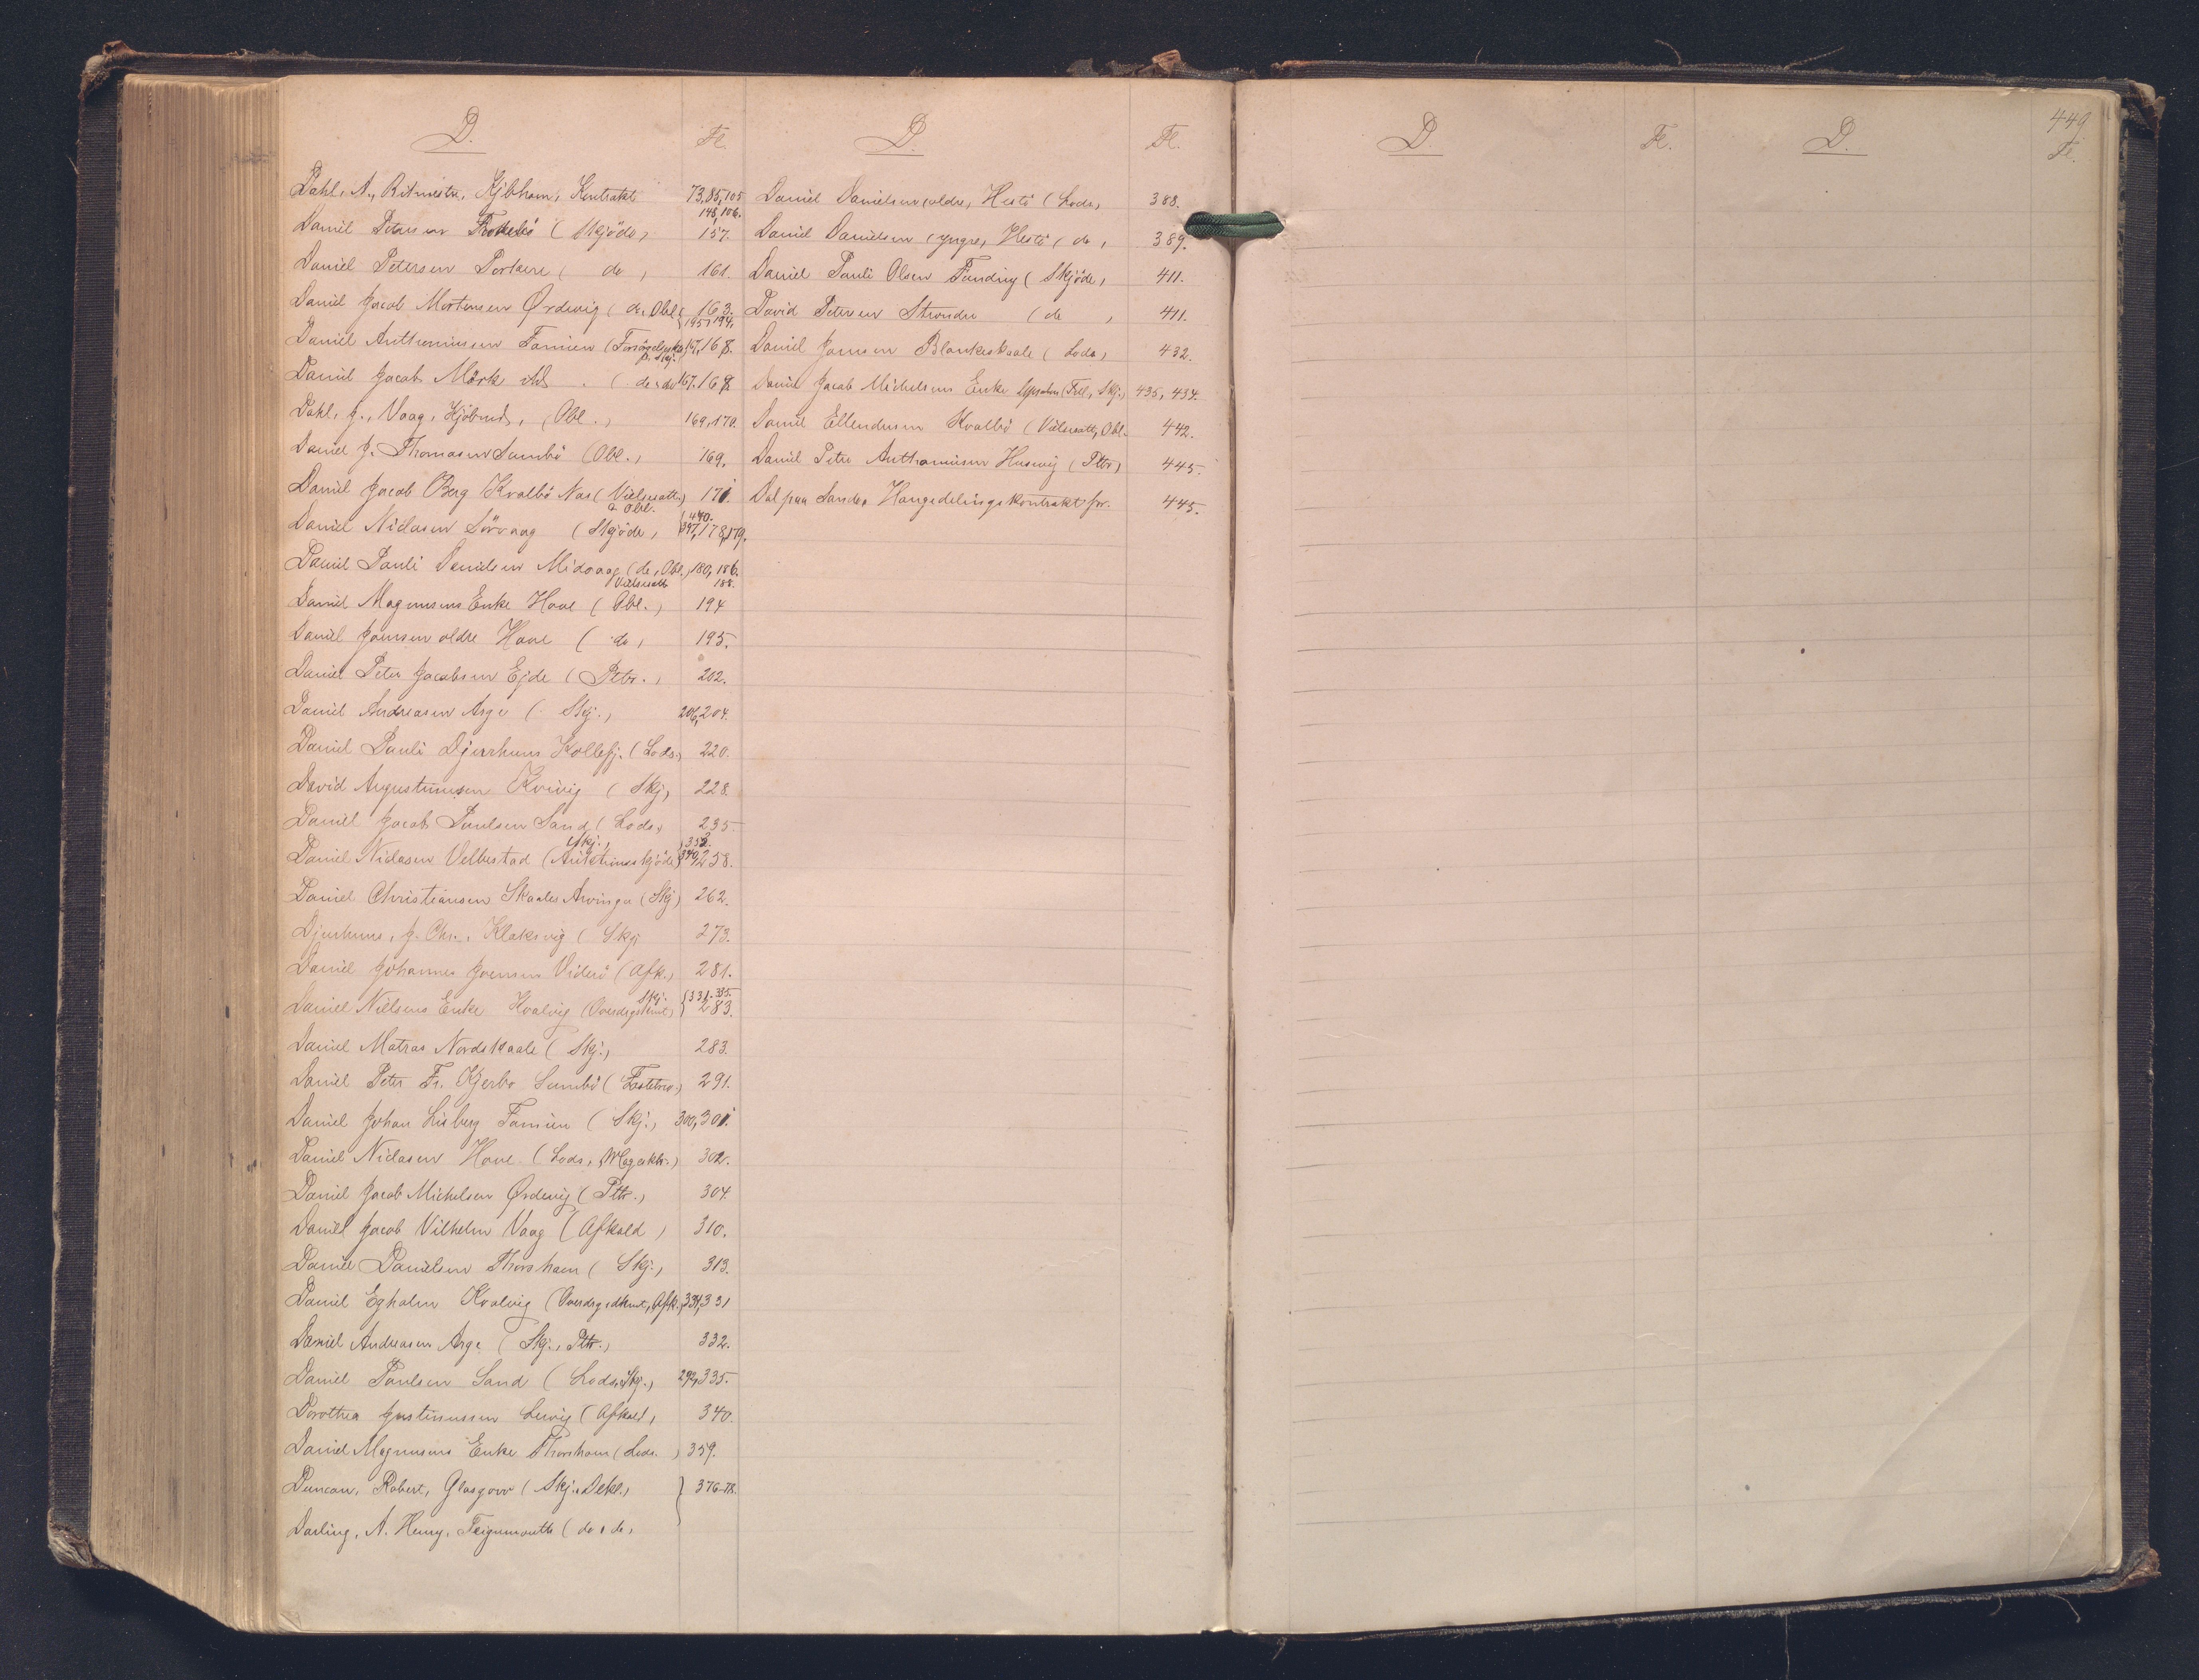 D. Fl.
Dahl, A., Ritmester, Kjbhavn, Kontrakt 73, 85, 105
148, 106.
Daniel Petersen Frodebö (Skjöde) 157.
Daniel Petersen Porkere (do) 161.
Daniel Jacob Mortensen Ørdevig (do, Obl.) 163.
195, 194,
Daniel Anthoniusen Famien 167, 168.
Daniel Jacob Mörk (do, do) 167, 168
Dahl, J., Vaag, Kjöbmd., (Obl.) 169, 170.
Daniel J. Thomasen Sumbö (Obl.) 169.
Daniel Jacob Berg Kvalbö Næs (Vielsesatt.) 171.
a Obl.
{440.
Daniel Niclasen Sörvaag (Skjöde) 347, 178, 179.
Daniel Pauli Danielsen Midvaag (do, Obl.) 180, 186.
Vielsesatt 188.
Daniel Magnusens Enke Hove (Obl.) 194
Daniel Joensen ældre Hove (do) 195.
Daniel Peter Jacobsen Ejde (Pttr.) 202.
Daniel Andreasen Arge (Skj.) 206, 204.
Daniel Pauli Djurhuus Kollefj. (Lods.) 220.
David Augustinusen Kvivig (Skj) 228.
Daniel Jacob Paulsen Sand (Lods) 235.
Skj., 352.
Daniel Niclasen Velbestad (Auktionsskjöde) 340, 258.
Daniel Christiansen Skaales Arvinger (Skj) 262.
Djurhuus, J. Chr., Klaksvig (Skj 273.
Daniel Johannes Joensen Viderö (Afk.) 281.
Skj. {331. 335.
Daniel Nielsens Enke Kvalvig (Overdragelsdkmt) 283.
Daniel Matras Nordskaale (Skj.) 283.
Daniel Peter Fr. Kjerbo Sumbö (Festebrev.) 291.
Daniel Johan Lisberg Famien (Skj.) 300, 301.
Daniel Niclasen Hove (Lods, Mageskt.) 302.
Daniel Jacob Michelsen Ørdevig (Pttr.) 304.
Daniel Jacob Vilhelm Vaag (Afkald) 310.
Daniel Danielsen Thorshavn (Skj.) 313.
Daniel Egholm Kvalvig (Overdrgsdkmt, Afk. 331, 331
Daniel Andreasen Arge (Skj., Pttr.) 332.
Daniel Poulsen Sand (Lods, Skj.) 292, 335.
Dorothea Justinussen Leivig (Afkald) 340.
Daniel Magnusens Enke Thorshavn (Lods.) 359.
Duncan, Robert, Glasgow (Skj., Dekl.) } 376-78.
Darling, A. Henry, Teignmouth (do, do)
D. Fl.
Daniel Danielsen (ældre, Hestö (Lods) 388.
Daniel Danielsen (yngre, Hestö (do) 389.
Daniel Pauli Olsen Funding (Skjöde) 411.
David Petersen Strender (do) 411.
Daniel Joensen Blankeskaale (Lods) 432.
Daniel Jacob Michelsens Enke (Skj.) 435, 434.
Daniel Ellendersen Kvalbö (Vielsesatt, Obl. 442.
Daniel Peter Anthoniusen Husevig (Pttr) 445.
Dal paa Sandø, Haugedelingskontrakt for. 445.
D. Fl.
D. 449.
Fl.